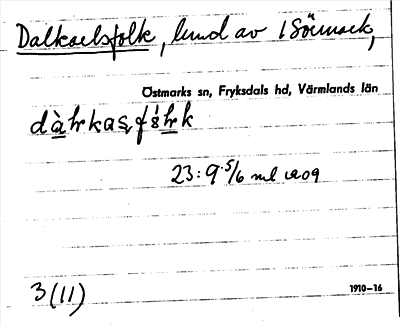 Dalkarlsfolk, kund av 1 Sörmark,
Östmarks sn, Fryksdals hd, Värmlands län
23: 9. 5/6 ml 1909
3 (11)
1910–16